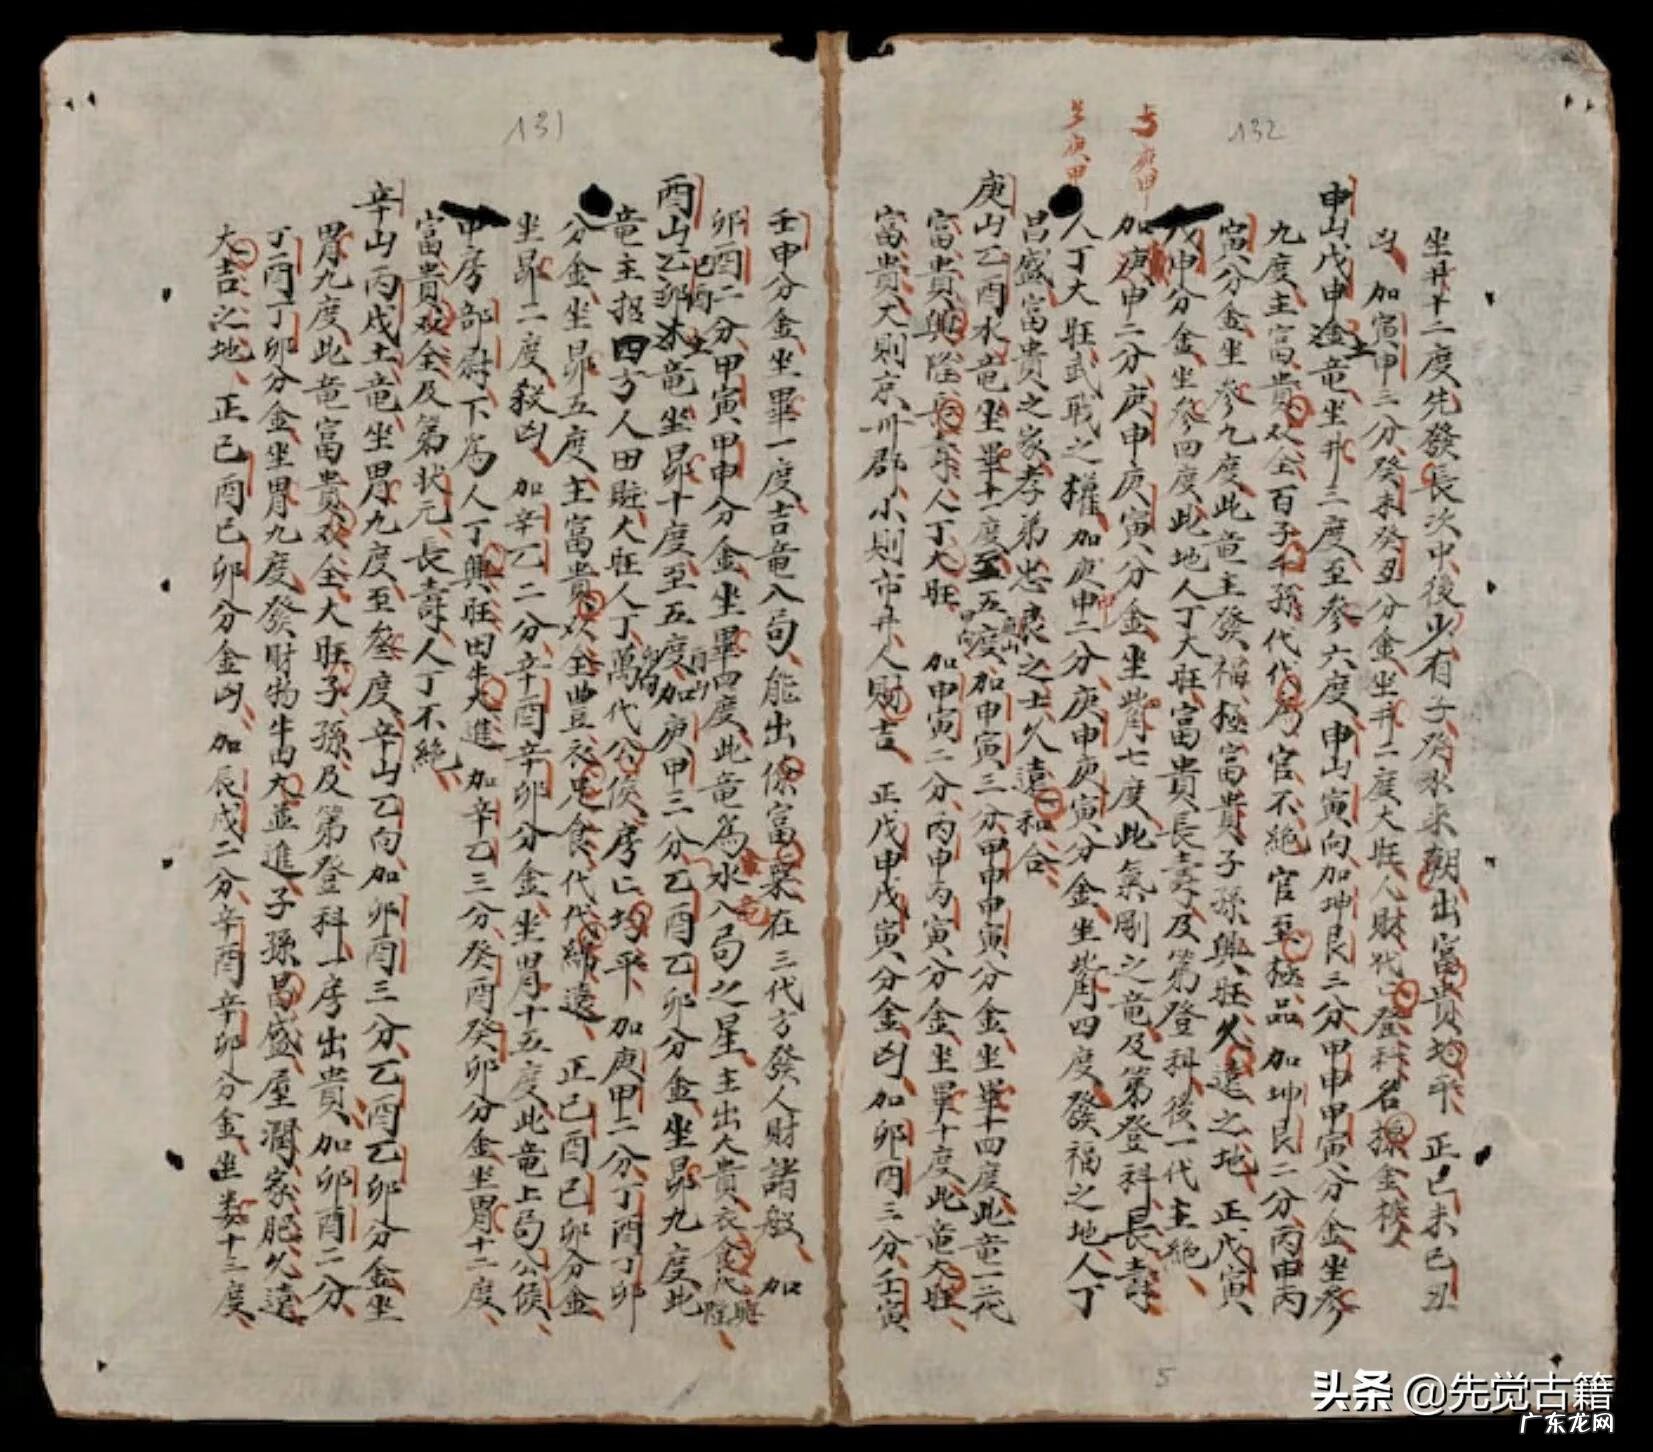 132
与庚甲
坐井十二度先發長次中後少有子癸水来朝出富貴均平 正己未己丑
凶 加寅申三分癸未癸丑分金坐井二度大旺人財代代登科名揚金榜
申山戊申土竜坐井三度至參六度申山寅向加坤艮三分甲申甲寅分金坐參
九度主富貴双全百子千孫代代為官不絶官至極品 加坤艮二分丙申丙
寅分金坐參九度此竜主發福極富貴子孫興旺久遠之地 正戊寅
戊申分金坐參四度此地人丁大旺富貴長壽及第登科後一代主絶
加庚申二分庚申庚寅分金坐觜七度此氣剛之竜及第登科長壽
人丁大旺武戰之權 加庚甲二分庚申庚寅分金坐觜四度發福之地人丁
昌盛富貴之家孝弟忠良之士久遠和合
庚山乙酉水竜坐畢十一度至五度 加申寅三分甲申甲寅分金坐畢十四度此竜一二代
富貴興隆長壽人丁大旺 加申寅二分丙申丙寅分金坐畢十度此竜大旺
富貴大則京州郡小則市井人財吉 正戊申戊寅分金凶 加卯酉三分壬寅
131
壬申分金坐畢一度吉竜入局能出係富粟在三代方發人財諸般 加
卯酉二分甲寅甲申分金坐畢四度此竜為水入局之星主出大貴衣食代興隆
酉山乙卯木竜坐昴十度至五度 加庚甲三分乙酉乙卯分金坐昴九度此
己酉土
竜主招四方人田賍人旺人丁萬代公侯房亡均平 加庚甲二分丁酉丁卯
分金坐昴五度主富貴双全豊衣足食代代綿遠 正己酉己卯分金
坐昴二度殺凶 加辛乙二分辛酉辛卯分金坐胃十五度此竜上局公侯
中房部尉下為人丁興旺田牛大進 加辛乙三分癸酉癸卯分金坐胃十二度
富貴双全及第状元長壽人丁不絶
辛山丙戌土竜坐胃九度至婁三度辛山乙向加卯酉三分乙酉乙卯分金坐
胃九度此竜富貴双全大旺子孫及第登科一房出貴 加卯酉二分
丁酉丁卯分金坐胃九度發財物牛田大並進子孫昌盛屋潤家肥久遠
大吉之地 正己酉己卯分金凶 加辰戌二分辛酉辛卯分金坐婁十三度
5
头条 @先觉古籍
广东龙网